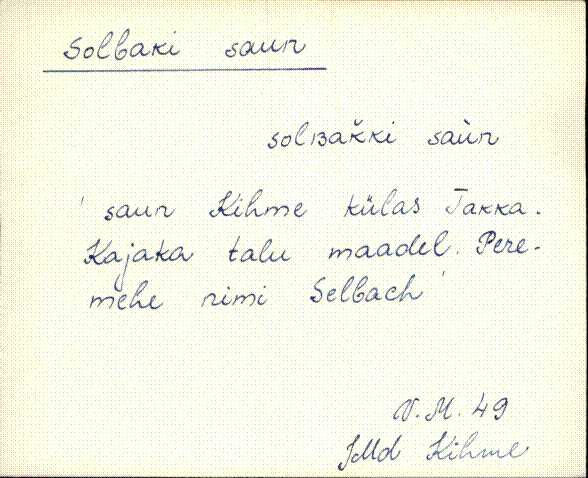 Solbaki saun
solʙak̆ki saùn
' saun Kihme külas Takka.
Kajaka talu maadel. Pere-
mehe nimi Selbach '
V. M. 49
JMd Kihme